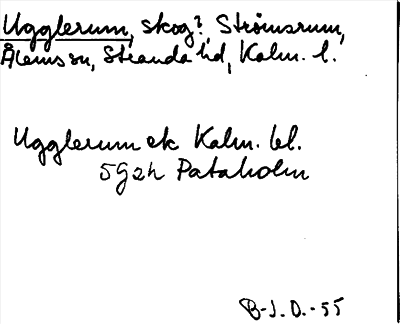 Ugglerum, skog?, Strömsrum,
Ålems sn, Stranda hd, Kalm. l.
Ugglerum ek Kalm. bl.
5G2h Pataholm
B-J.O.-55